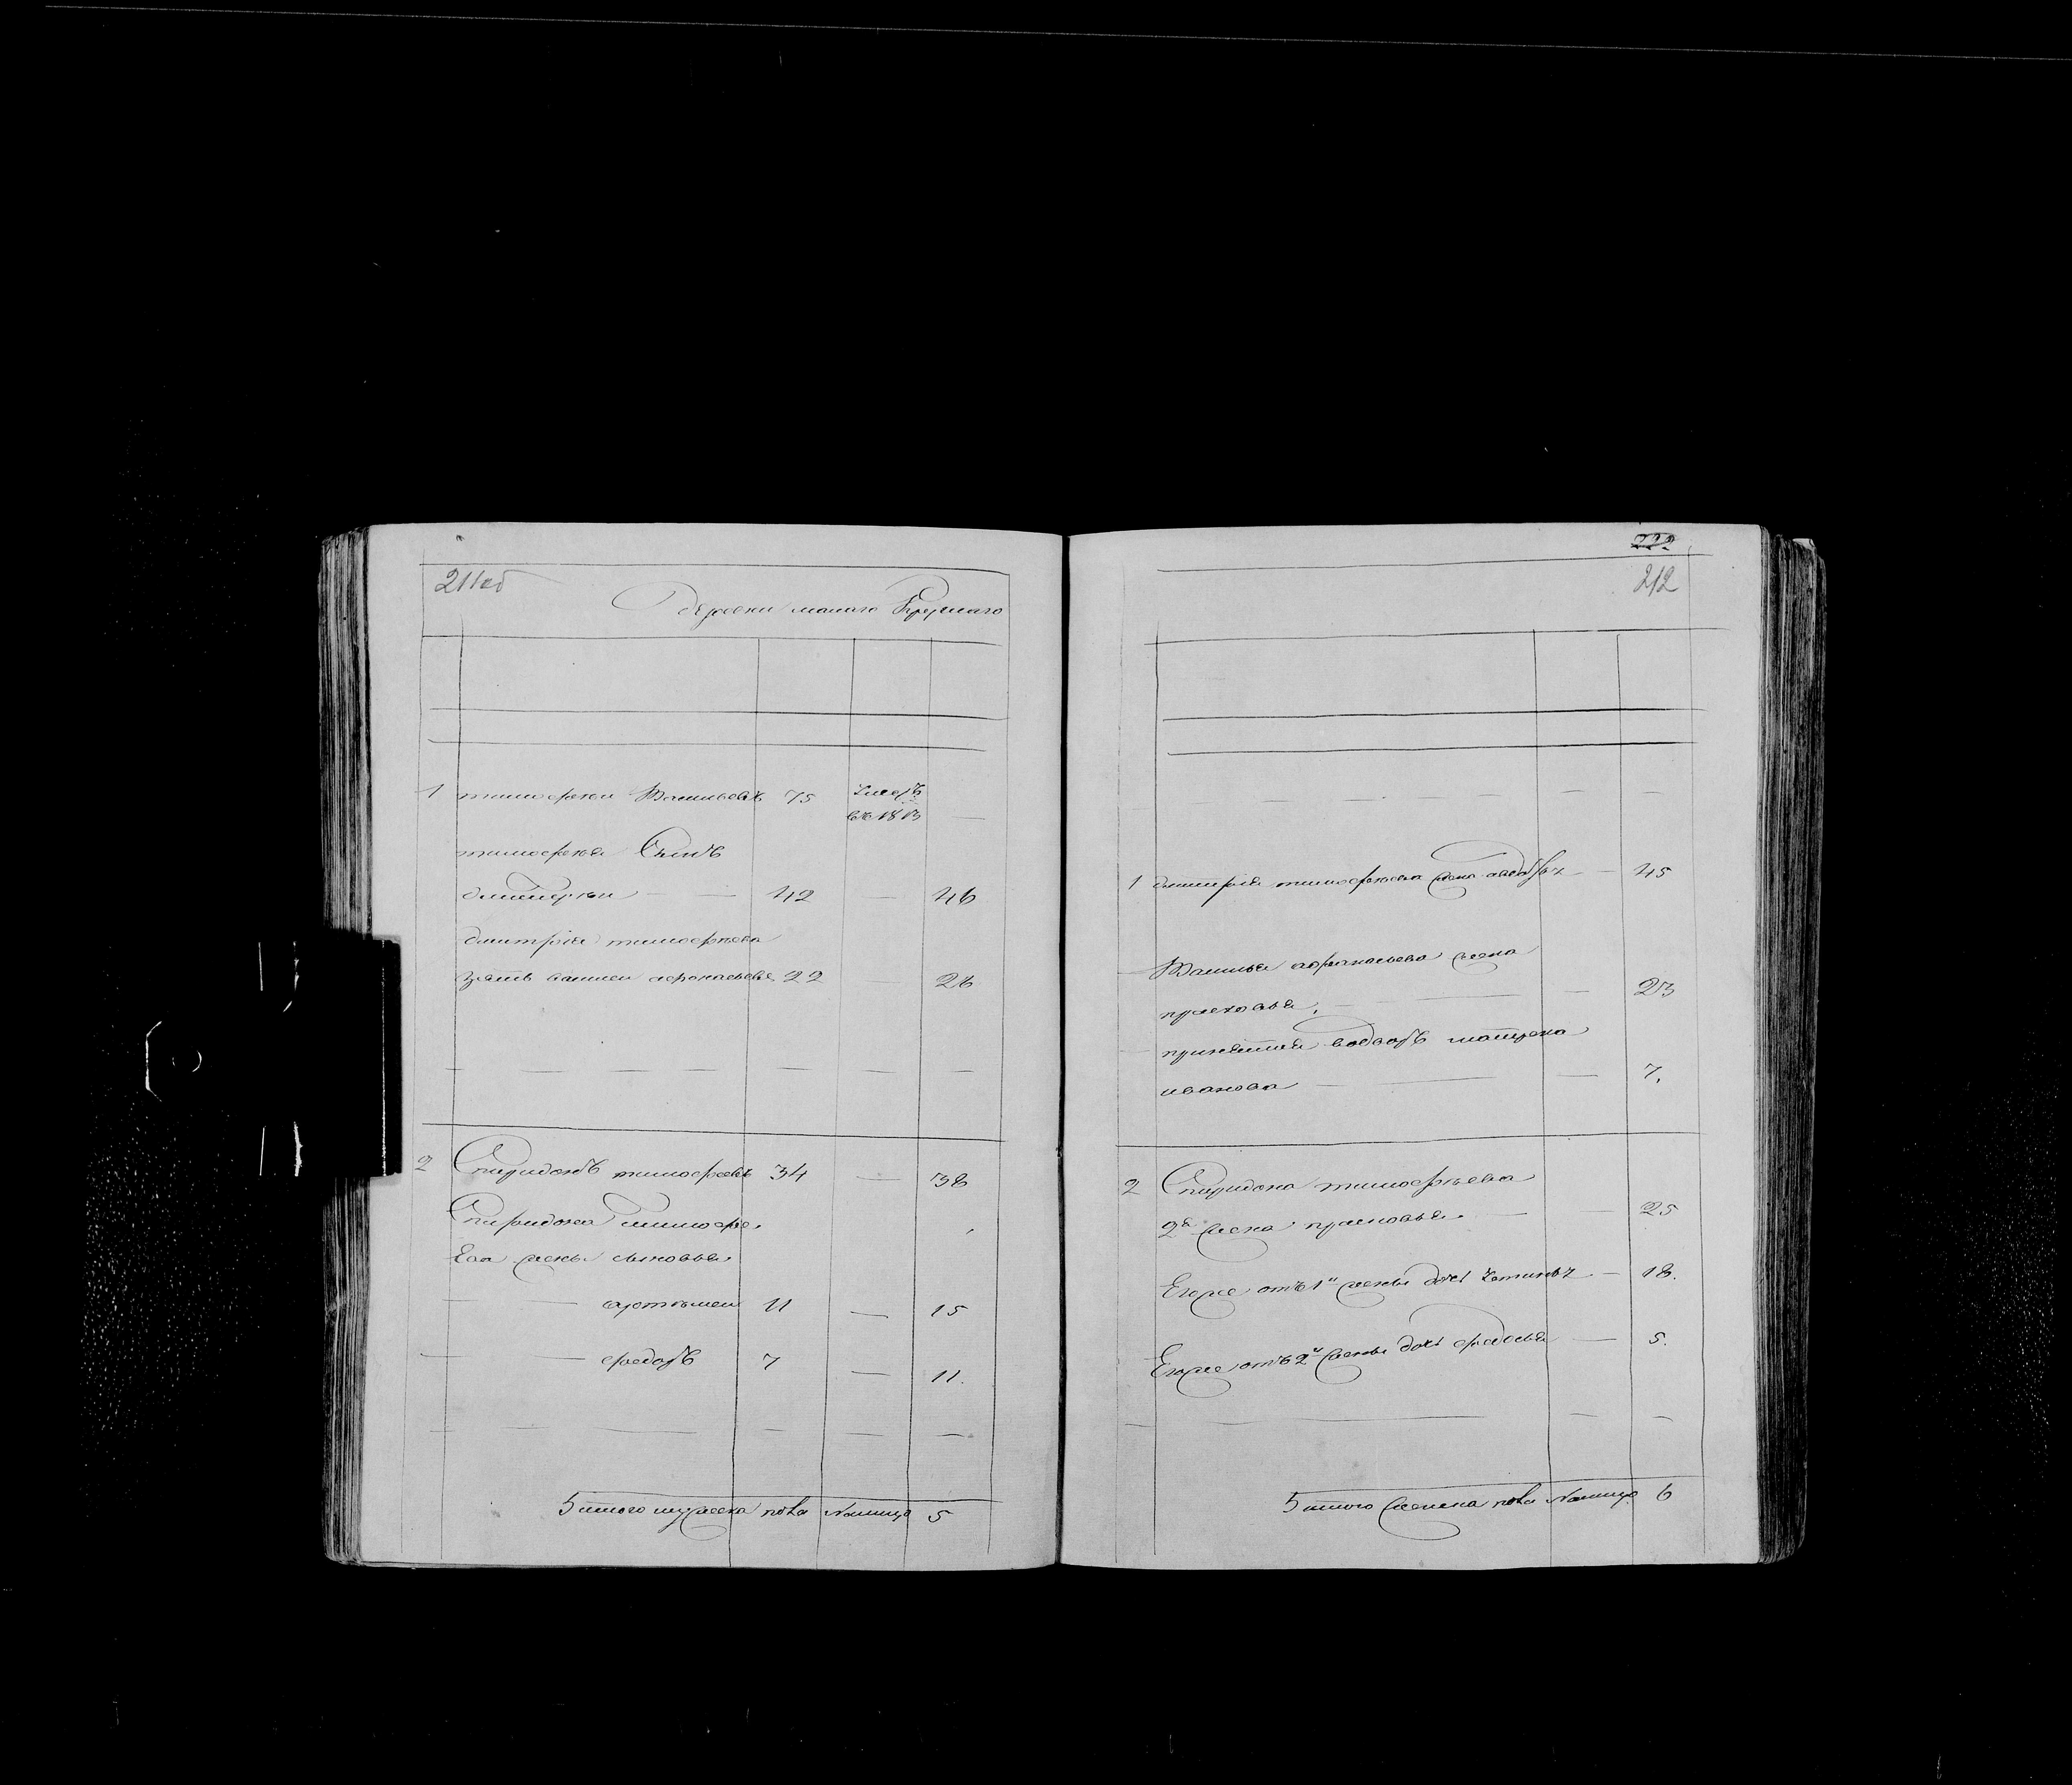 211об
Деревни малаго Крутаго
1 тимофеи Василевъ 75 Умеръ
въ 1813 —
тимофея Сынъ
дмитреи — 42 — 46
дмитрія тимофеева
зять василеи афонасьевъ 22 — 26
2 Спиридонъ тимофеевъ 34 — 38
Спиридона тимофее.
Ева жены сыновья
артемеи 11 — 15
федоръ 7 — 11.
Итого мужеска пола налицо 5
222
212
1 дмитрія тимофеева жена — 45
Василья афанасьева жена
прасковья, — 23
принятая водворъ матрена
иванова — 7.
2 Спиридона тимофеева
2я жена прасковья — 25
Егоже отъ 1й жены дочь — 18.
Егоже отъ 2й жены дочь федосья — 5.
Итого женска пола налицо 6